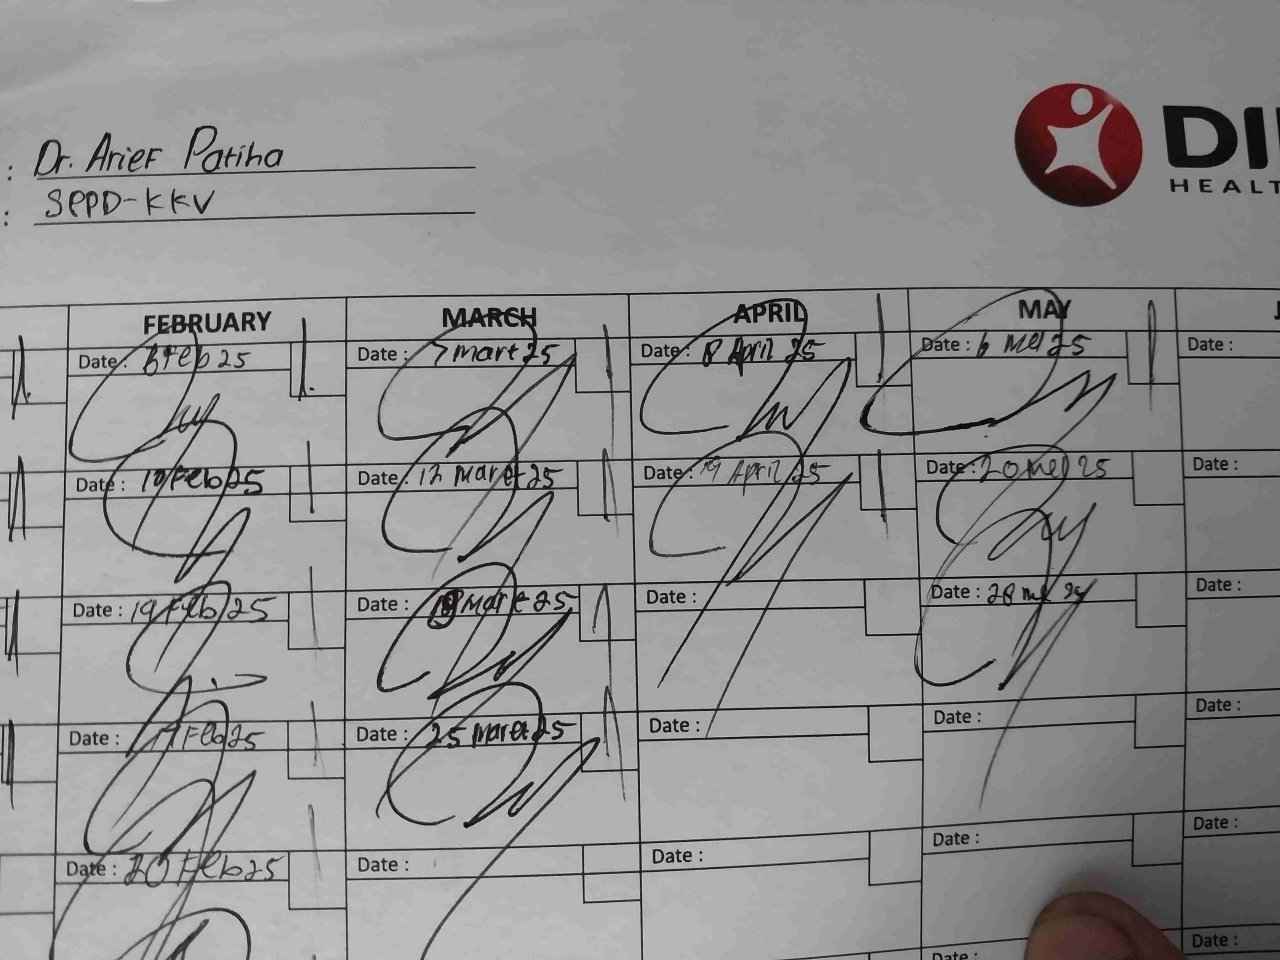 : Dr. Arief Patiha
: SPPD-KKV
DI
HEALT
FEBRUARY MARCH APRIL MAY J
Date : 6 Feb 25 Date : 7 Maret 25 Date : 8 April 25 Date : 6 Mei 25 Date :
Date : 10 Feb 25 Date : 12 Maret 25 Date : April 25 Date : 20 Mei 25 Date :
Date : 14 Feb 25 Date : Maret 25 Date : Date : 28 Mei Date :
Date : Feb 25 Date : 25 Maret 25 Date : Date : Date :
Date : 20 Feb 25 Date : Date : Date : Date :
Date :